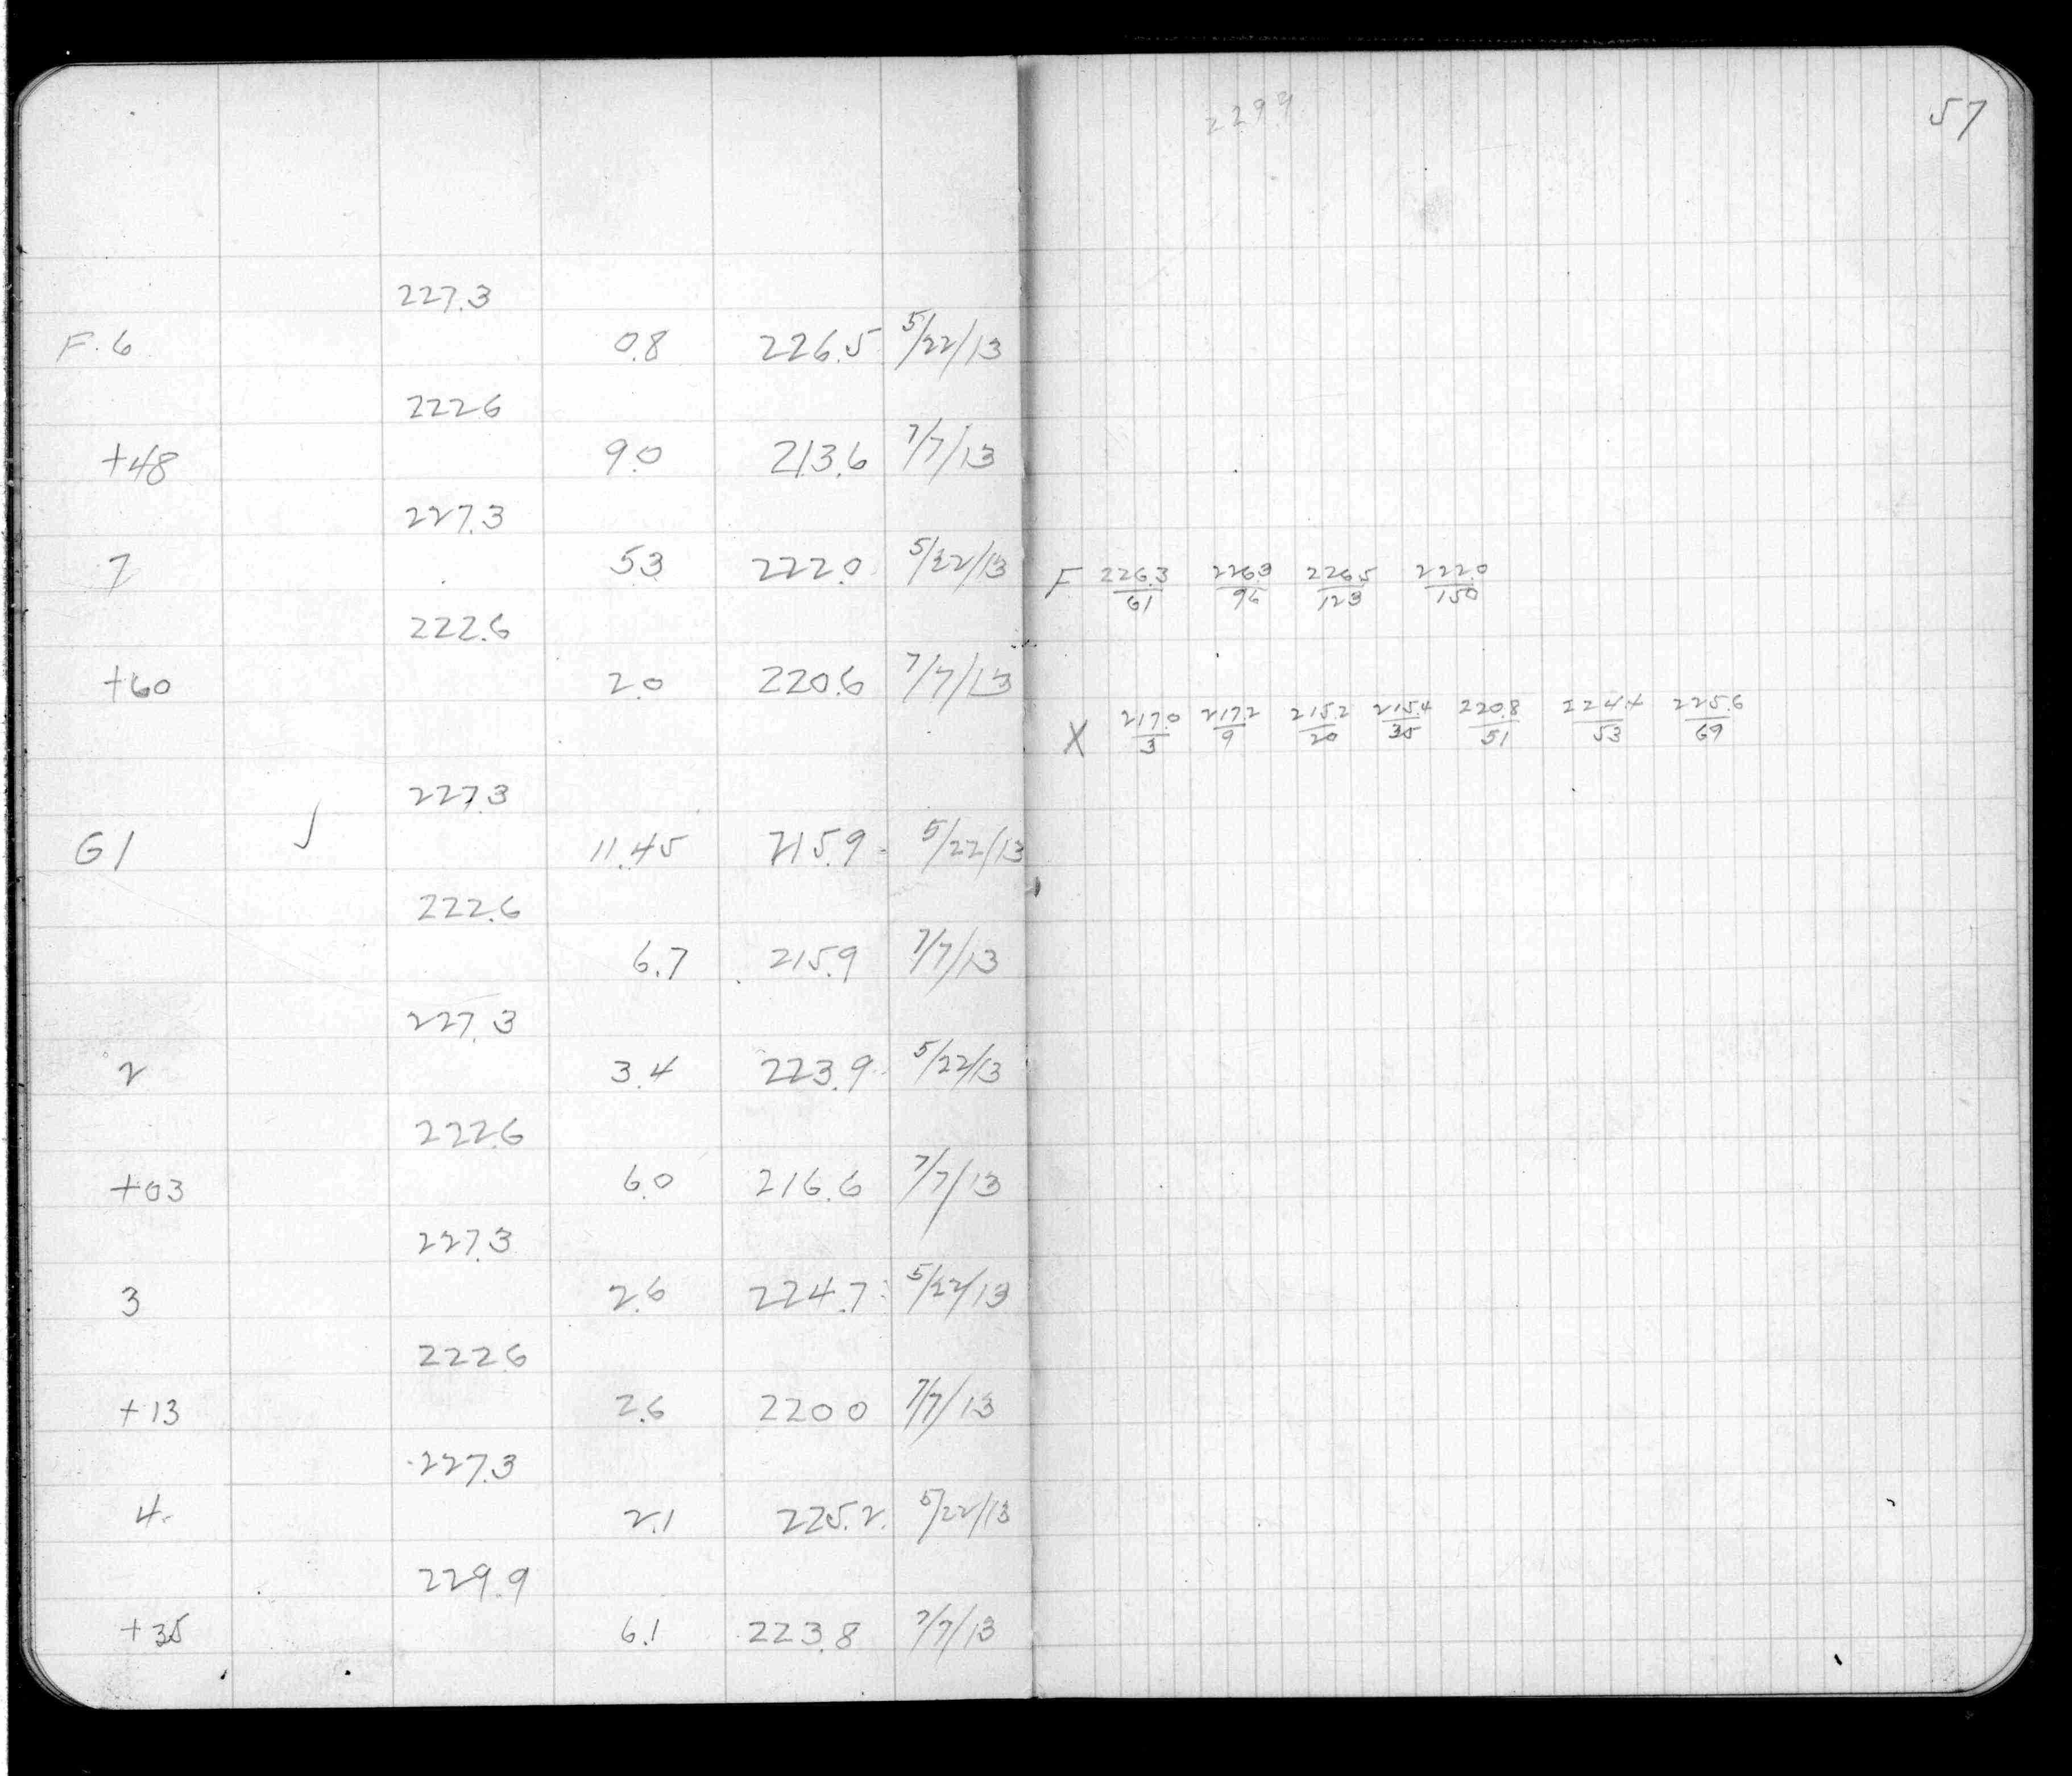 227.3
F. 6 0.8 226.5 5/22/13
222.6
+48 9.0 213.6 7/7/13
227.3
7 5.3 222.0 5/22/13
222.6
+60 2.0 220.6 7/7/13
227.3
G1 11.45 215.9 5/22/13
222.6
6.7 215.9 7/7/13
227.3
2 3.4 223.9 5/22/13
222.6
+03 6.0 216.6 7/7/13
227.3
3 2.6 224.7 5/22/13
222.6
+13 2.6 220.0 7/7/13
227.3
4 2.1 225.2 5/22/13
229.9
+35 6.1 223.8 7/7/13
2299
57
F 226.3/61 226.3/96 226.5/123 222.0/150
X 217.0/3 217.2/9 215.2/20 215.4/35 220.8/51 224.4/53 225.6/69